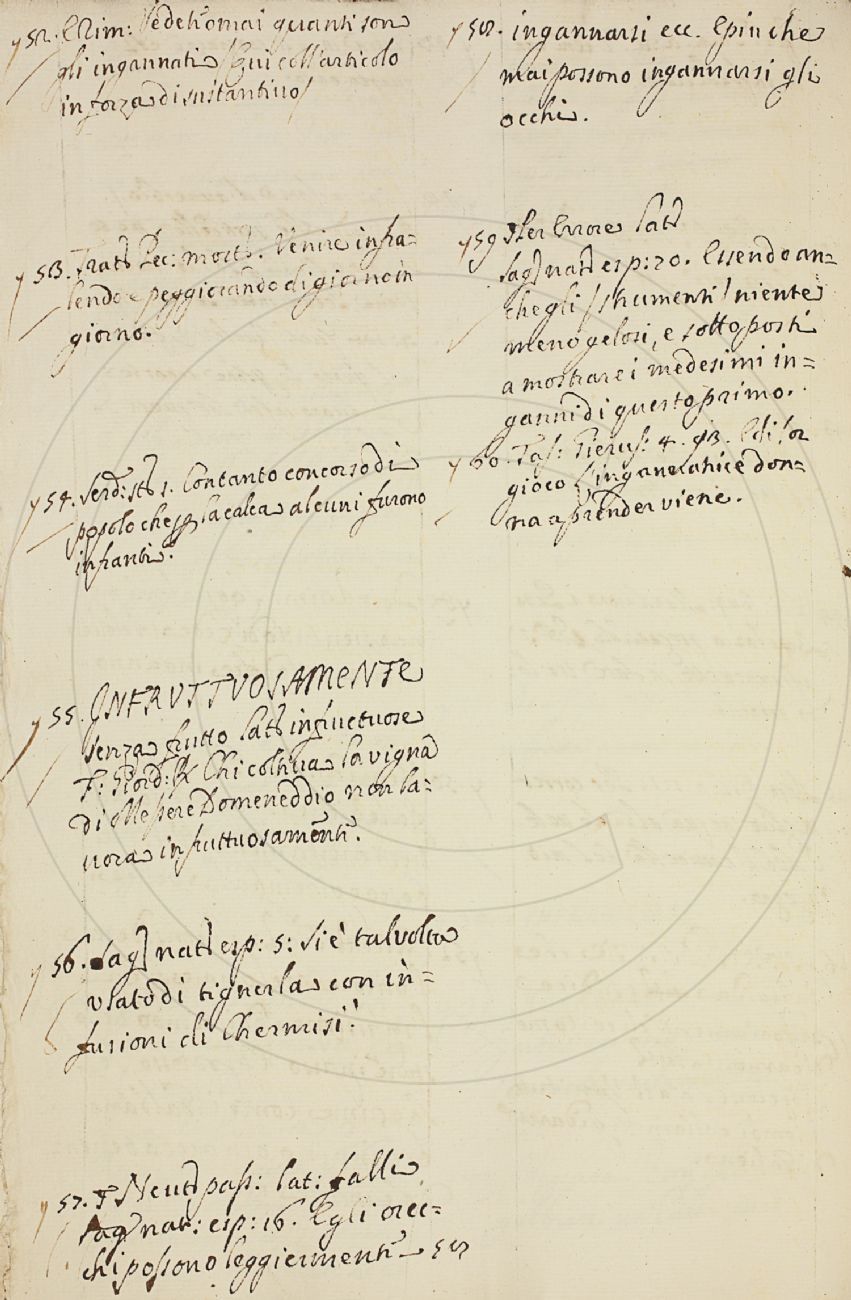 y 52. E Rim: Vedeti omai quanti son
gli ingannati / Qui coll'articolo
in forza di sustantivo /
y 53. Tratt. Pec: mort. Venire infra=
lendo e peggiorando di giorno in
giorno.
y 54. Serd: st. 1. Con tanto concorso di
popolo che p la calca alcuni furono
infranti.
y 55. INFRUTTUOSAMENTE
senza frutto lat. infructuose
F: Giord: Chi coltiva la vigna
di Messere Domeneddio non la=
vora infruttuosamente.
y 56. Sag. nat. esp: 5: Si è talvolta
usato di tignerla con in=
fusioni di Chermisi.
y 57. Neut. pass: lat: falli
sag nat: esp: 16. E gli occ=
chi possono leggiermente 58
y 58. ingannarsi ecc. E più che
mai possono ingannarsi gli
occhi.
y 59 Per Errore lat.
sag. nat. esp: 20. Essendo an=
che gli / strumenti / niente
meno gelosi, e sottoposti
a mostrare i medesimi in=
ganni di questo primo.
y 60. Tass: Gierus: 4. 93. Edi lor
gioco l'ingannatrice don=
na a prender viene.